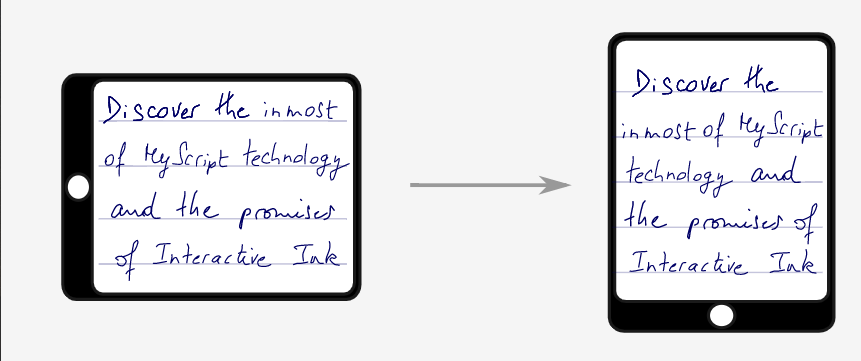 Discover the inmost
of MyScript technology
and the promises
of Interactive Ink
Discover the
inmost of MyScript
technology and
the promises of
Interactive Ink